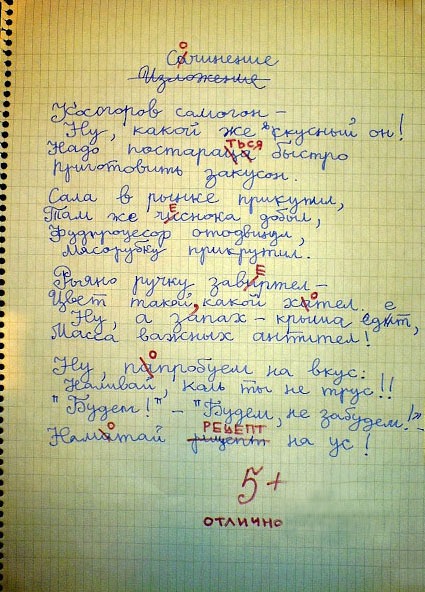 Сочинение
Изложение
Косогоров самогон –
Ну, какой же "скусный" он!
Надо постараться быстро
приготовить закусон.
Сала в рынке прикупил,
Там же чеснока добыл,
Фудпроцесор отодвинул,
Мясорубку прикрутил.
Рьяно ручку завертел –
Цвет такой, какой хотел.
Ну, а запах – крыша едет,
Масса важных антител!
Ну, попробуем на вкус:
Наливай, коль ты не трус!!
"Будем!" – "Будем, не забудем!" –
Намотай рецепт на ус!
5+
отлично